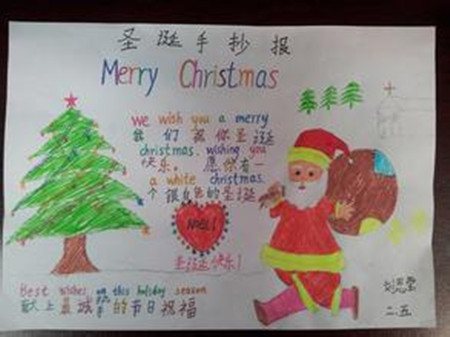 圣诞手抄报
Merry Christmas
we wish you a merry
我们祝你圣诞
christmas. wishing you
快乐。愿你有一
a white christmas.
个银白色的圣诞
NOEL!
圣诞快乐!
Best wishes on this holiday season
献上最诚挚的节日祝福
二.五